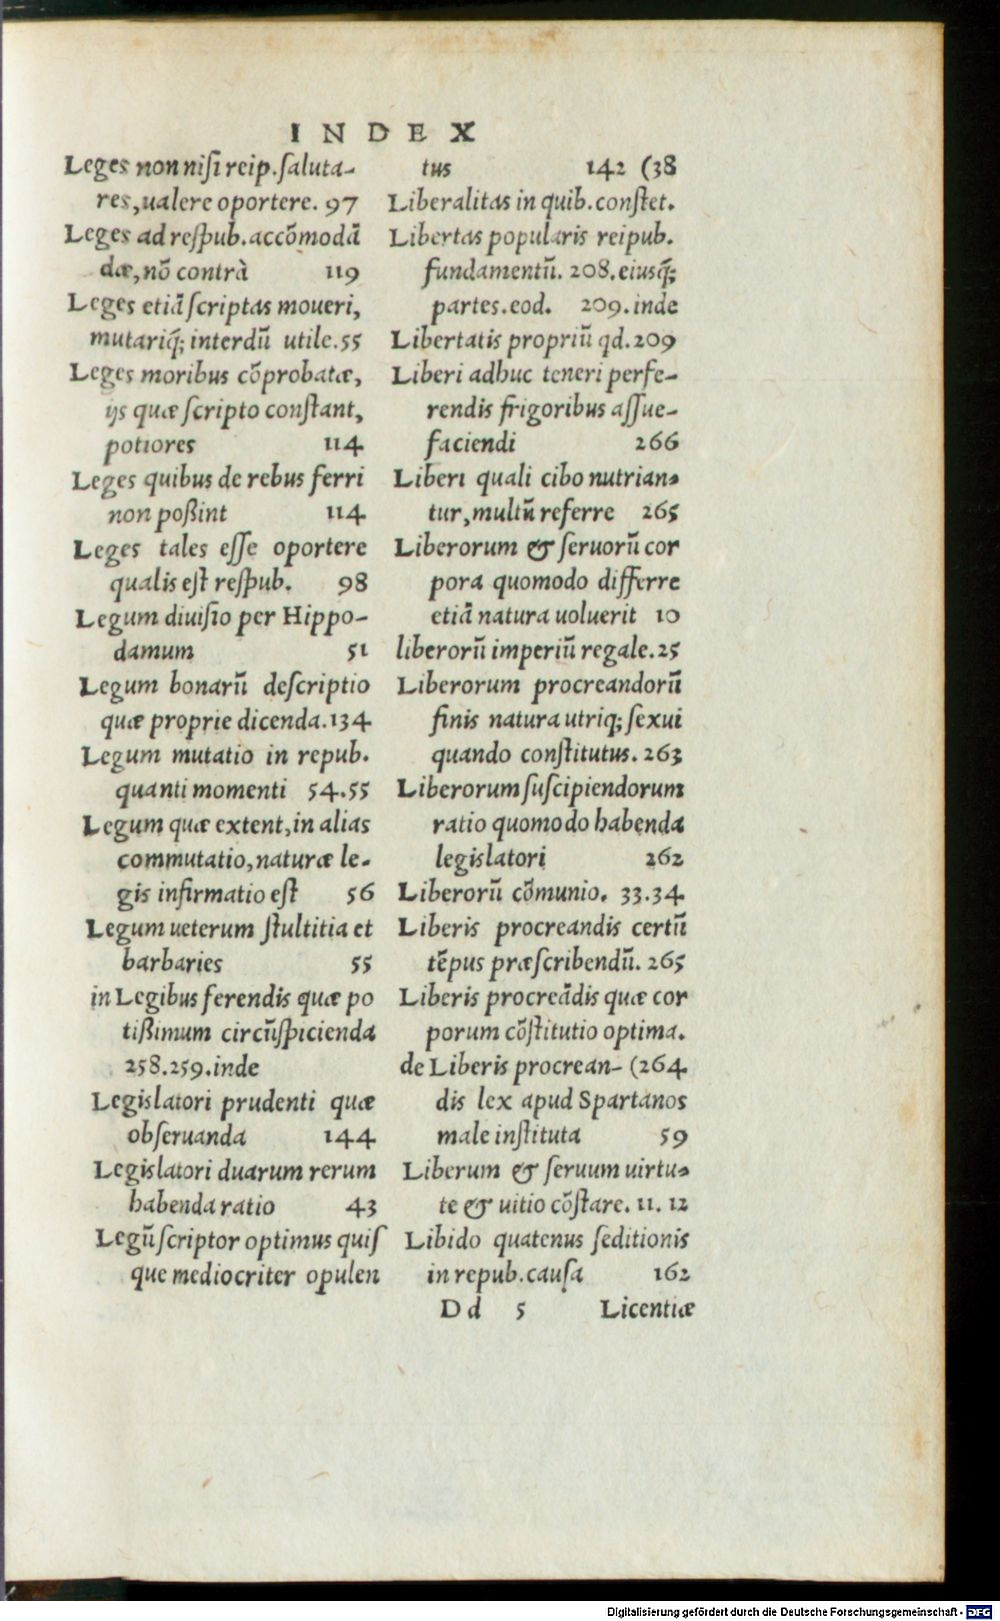 INDEX
Leges non nisi reip. saluta-
res, ualere oportere. 97
Leges ad respub. accõmodã
dæ, nõ contrà 119
Leges etiã scriptas moueri,
mutariq; interdũ utile. 55
Leges moribus cõprobatæ,
ijs quæ scripto constant,
potiores 114
Leges quibus de rebus ferri
non poßint 114
Leges tales esse oportere
qualis est respub. 98
Legum diuisio per Hippo-
damum 51
Legum bonarũ descriptio
quæ proprie dicenda. 134
Legum mutatio in repub.
quanti momenti 54.55
Legum quæ extent, in alias
commutatio, naturæ le-
gis infirmatio est 56
Legum ueterum stultitia et
barbaries 55
in Legibus ferendis quæ po
tißimum circũspicienda
258.259. inde
Legislatori prudenti quæ
obseruanda 144
Legislatori duarum rerum
habenda ratio 43
Legũ scriptor optimus quis
que mediocriter opulen
tus 142 (38
Liberalitas in quib. constet.
Libertas popularis reipub.
fundamentũ. 208. eiusq;
partes. eod. 209. inde
Libertatis propriũ qd. 209
Liberi adhuc teneri perfe-
rendis frigoribus assue-
faciendi 266
Liberi quali cibo nutrian-
tur, multũ referre 265
Liberorum & seruorũ cor
pora quomodo differre
etiã natura uoluerit 10
liberorũ imperiũ regale. 25
Liberorum procreandorũ
finis natura utriq; sexui
quando constitutus. 263
Liberorum suscipiendorum
ratio quomodo habenda
legislatori 262
Liberorũ cõmunio. 33.34
Liberis procreandis certũ
tẽpus præscribendũ. 265
Liberis procreãdis quæ cor
porum cõstitutio optima.
de Liberis procrean- (264
dis lex apud Spartanos
male instituta 59
Liberum & seruum uirtu-
te & uitio cõstare. 11. 12
Libido quatenus seditionis
in repub. causa 162
Dd 5 Licentiæ
Digitalisierung gefördert durch die Deutsche Forschungsgemeinschaft - DFG